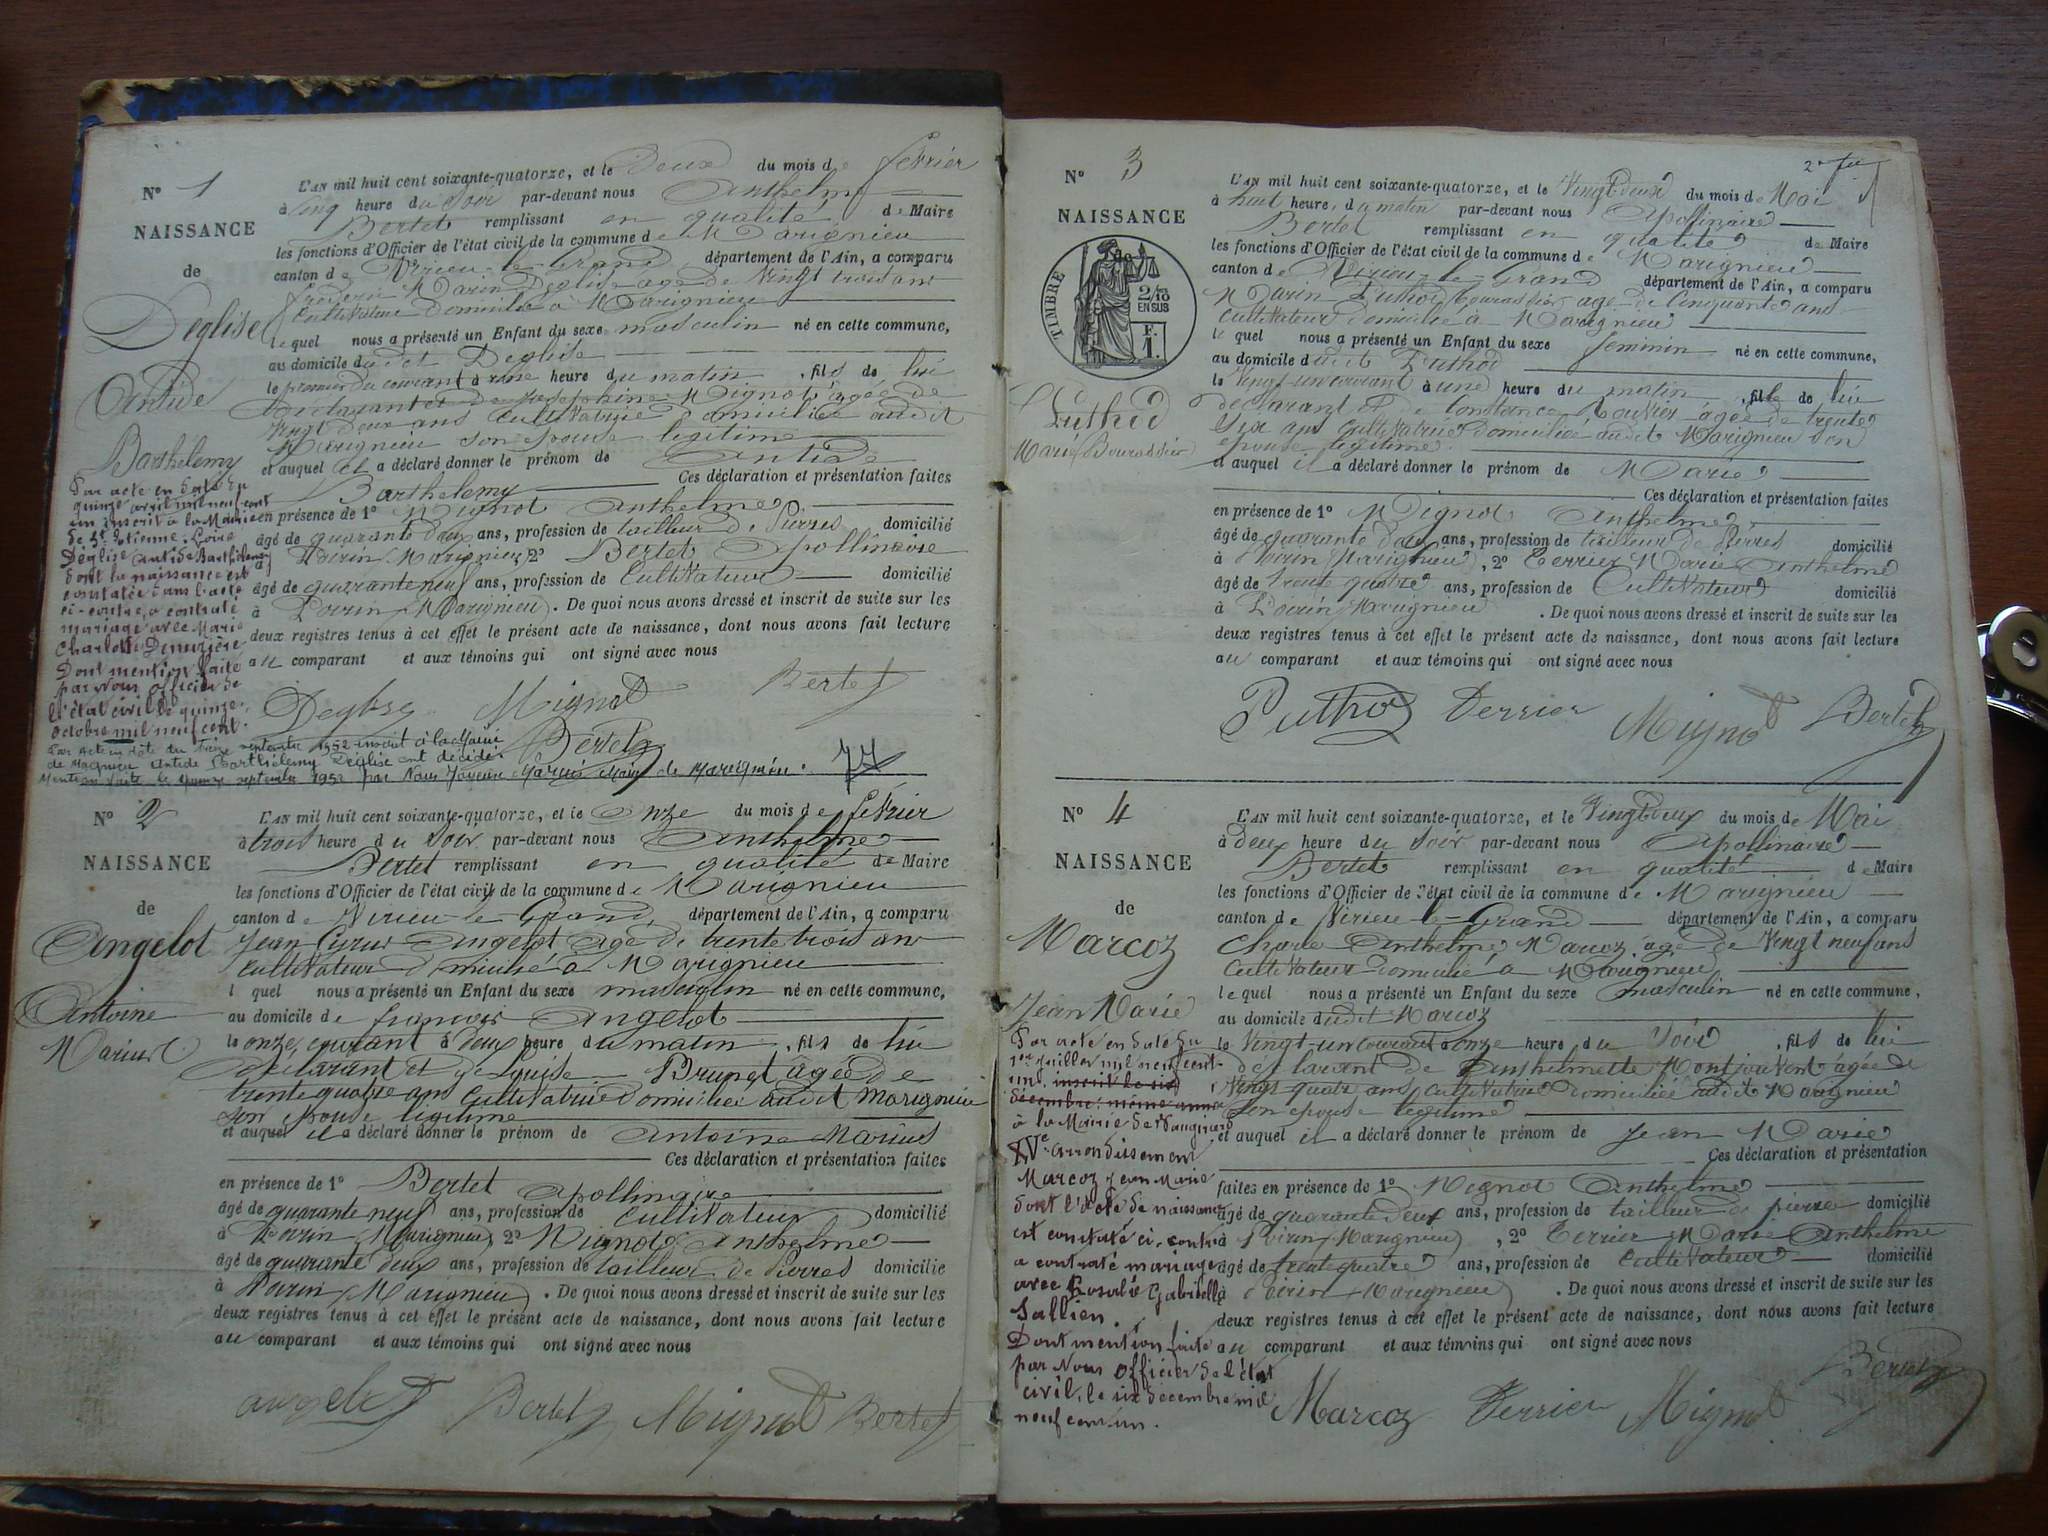 N° 1
NAISSANCE
de
Deglise
Antide
Barthelemy
L'AN mil huit cent soixante-quatorze, et le Deux du mois de février
à cinq heure du soir par-devant nous Anthelme
Bertet remplissant en qualité de Maire
les fonctions d'Officier de l'état civil de la commune de Marignieu
canton de Virieu-le-Grand département de l'Ain, a comparu
frederic Marin Deglise age de Vingt trois ans
cultivateur domicilié à Marignieu
lequel nous a présenté un Enfant du sexe masculin né en cette commune,
au domicile dudit Deglise
le premier du courant à une heure du matin, fils de lui
déclarant et de Josephine Mignot âgée de
vingt deux ans cultivatrice domiciliée audit
Marignieu son épouse legitime
et auquel il a déclaré donner le prénom de Antide
Barthelemy Ces déclaration et présentation faites
en présence de 1° Mignot Anthelme
âgé de quarante deux ans, profession de tailleur de Pierres domicilié
à Poirin (Marignieu) 2° Bertet Apollinaire
âgé de quarante neuf ans, profession de Cultivateur domicilié
à Poirin (Marignieu). De quoi nous avons dressé et inscrit de suite sur les
deux registres tenus à cet effet le présent acte de naissance, dont nous avons fait lecture
au comparant et aux témoins qui ont signé avec nous
Deglise Mignot Bertet
Bertet
77
Par acte en date du
quinze avril mil neuf cent
un inscrit à la Mairie
de St Etienne, Loire
Déglise Antide Barthélemy
dont la naissance est
constatée dans l'acte
ci-contre, a contracté
mariage avec Marie
Charlotte
Dont mention faite
par Nous officier de
l'état civil le quinze
octobre mil neuf cent.
Par Acte en date du treize septembre 1952 inscrit à la Mairie
de Magnieu Antide Barthélemy Déglise est décédé.
Mention faite le quinze septembre 1952 par Nous Maire de Marignieu.
N° 2
NAISSANCE
de
Angelot
Antoine
Marius
L'AN mil huit cent soixante-quatorze, et le Onze du mois de février
à trois heure du soir par-devant nous Anthelme
Bertet remplissant en qualité de Maire
les fonctions d'Officier de l'état civil de la commune de Marignieu
canton de Virieu-le-Grand, département de l'Ain, a comparu
Jean Cyrus Angelot agé de trente trois ans
cultivateur domicilié à Marignieu
lequel nous a présenté un Enfant du sexe masculin né en cette commune,
au domicile de françois Angelot
le onze courant à deux heure du matin, fils de lui
déclarant et de Louise Brunet âgée de
trente quatre ans cultivatrice domiciliée audit Marignieu
son épouse légitime
et auquel il a déclaré donner le prénom de Antoine Marius
Ces déclaration et présentation faites
en présence de 1° Bertet Apollinaire
âgé de quarante neuf ans, profession de cultivateur domicilié
à Poirin (Marignieu) 2° Mignot Anthelme
âgé de quarante deux ans, profession de tailleur de Pierres domicilié
à Poirin (Marignieu). De quoi nous avons dressé et inscrit de suite sur les
deux registres tenus à cet effet le présent acte de naissance, dont nous avons fait lecture
au comparant et aux témoins qui ont signé avec nous
angelot Bertet Mignot Bertet
2e
N° 3
NAISSANCE
de
TIMBRE
2/10
EN SUS
F.
1.
Puthod
Marie (Bourassier)
L'AN mil huit cent soixante-quatorze, et le Vingt deux du mois de Mai
à huit heure, du matin par-devant nous Apollinaire
Bertet remplissant en qualité de Maire
les fonctions d'Officier de l'état civil de la commune de Marignieu
canton de Virieu-le-Grand département de l'Ain, a comparu
Marin Puthod (Bourassier) agé de Cinquante ans
cultivateur domicilié à Marignieu
lequel nous a présenté un Enfant du sexe feminin né en cette commune,
au domicile dudit Puthod
le Vingt-un courant à une heure du matin, fille de lui
déclarant et de Constance Bouvier âgée de trente
six ans cultivatrice domiciliée audit Marignieu son
épouse legitime
et auquel il a déclaré donner le prénom de Marie
Ces déclaration et présentation faites
en présence de 1° Mignot Anthelme
âgé de quarante deux ans, profession de tailleur de Pierres domicilié
à Poirin (Marignieu), 2° Terrier Marie Anthelme
âgé de trente quatre ans, profession de Cultivateur domicilié
à Poirin (Marignieu). De quoi nous avons dressé et inscrit de suite sur les
deux registres tenus à cet effet le présent acte de naissance, dont nous avons fait lecture
au comparant et aux témoins qui ont signé avec nous
Puthod Terrier Mignot Bertet
N° 4
NAISSANCE
de
Marcoz
Jean Marie
L'AN mil huit cent soixante-quatorze, et le Vingt deux du mois de Mai
à deux heure du soir par-devant nous Apollinaire
Bertet remplissant en qualité de Maire
les fonctions d'Officier de l'état civil de la commune de Marignieu
canton de Virieu-le-Grand département de l'Ain, a comparu
Charle Anthelme Marcoz, agé de Vingt neuf ans
cultivateur domicilié à Marignieu
lequel nous a présenté un Enfant du sexe masculin né en cette commune,
au domicile dudit Marcoz
le Vingt-un courant à onze heure du soir, fils de lui
déclarant de Anthelmette Montjouvent âgée de
vingt quatre ans cultivatrice domiciliée audit Marignieu
son épouse légitime
et auquel il a déclaré donner le prénom de Jean Marie
Ces déclaration et présentation
faites en présence de 1° Mignot Anthelme
âgé de quarante deux ans, profession de tailleur de pierre domicilié
à Poirin (Marignieu), 2° Terrier Marie Anthelme
âgé de trente quatre ans, profession de cultivateur domicilié
à Poirin (Marignieu). De quoi nous avons dressé et inscrit de suite sur les
deux registres tenus à cet effet le présent acte de naissance, dont nous avons fait lecture
au comparant et aux témoins qui ont signé avec nous
Marcoz Terrier Mignot Bertet
Par acte en date du
1er juillet mil neuf cent
un, inscrit le six
décembre même année
à la Mairie de Vaugirard
XVe arrondissement
Marcoz Jean Marie
dont l'acte de naissance
est constaté ci-contre
a contracté mariage
avec Rosalie Gabrielle
Sallien.
Dont mention faite
par Nous Officier de l'état
civil, le six decembre mil
neuf cent un.